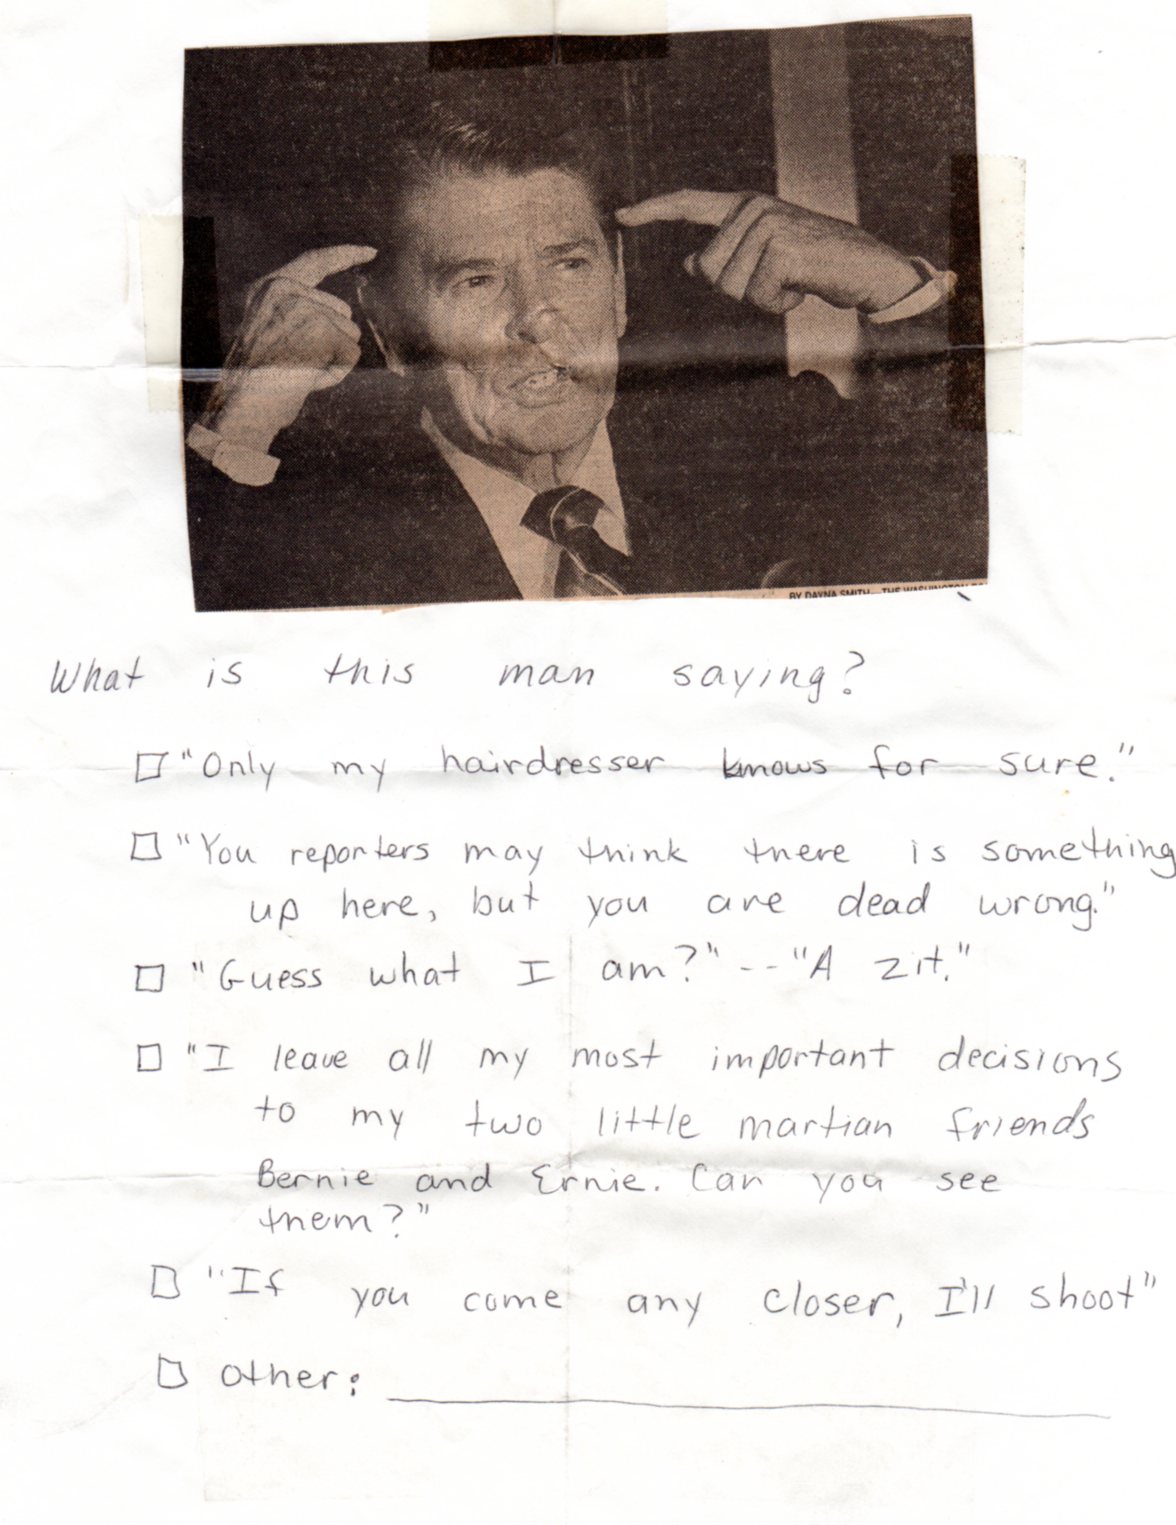 BY DAYNA SMITH—THE WASHINGTON
What is this man saying?
"Only my hairdresser knows for sure."
"You reporters may think there is something
up here, but you are dead wrong."
"Guess what I am?" -- "A zit."
"I leave all my most important decisions
to my two little martian friends
Bernie and Ernie. Can you see
them?"
"If you come any closer, I'll shoot"
Other: